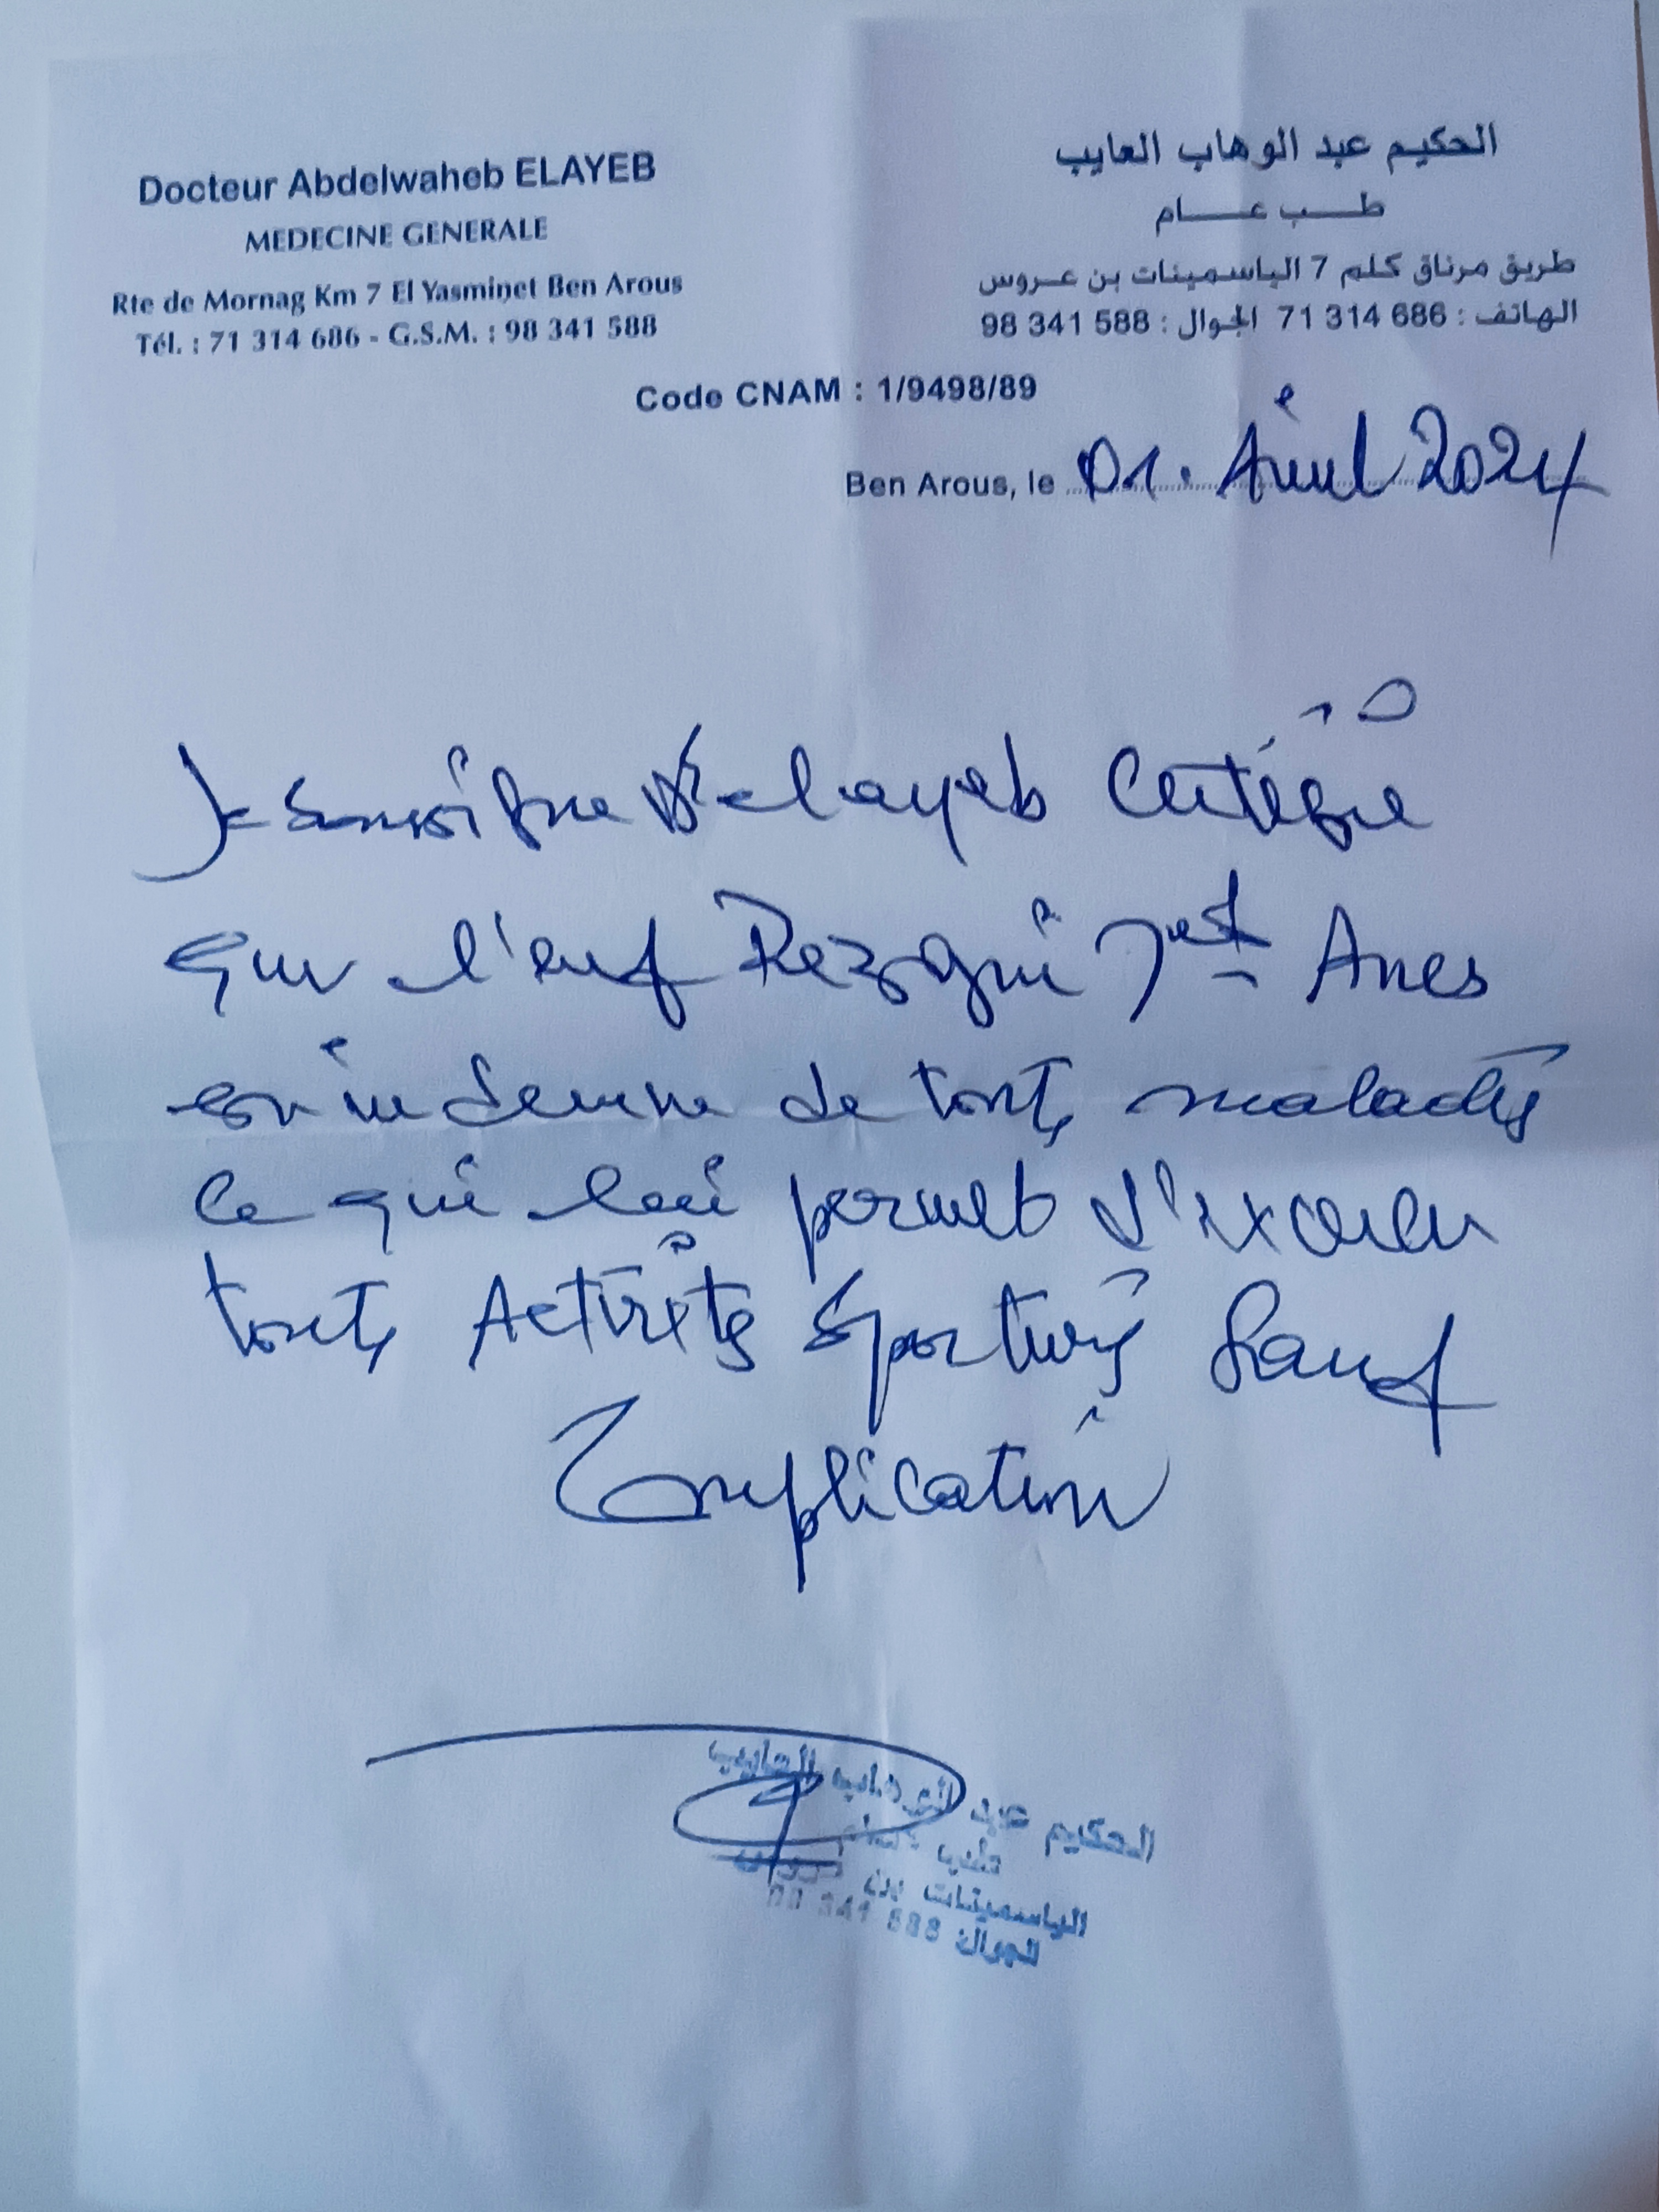 Docteur Abdelwaheb ELAYEB
MEDECINE GENERALE
Rte de Mornag Km 7 El Yasminet Ben Arous
Tél. : 71 314 686 - G.S.M. : 98 341 588
الحكيم عبد الوهاب العايب
طب عام
طريق مرناق كلم 7 الياسمينات بن عروس
الهاتف : 686 314 71 الجوال : 588 341 98
Code CNAM : 1/9498/89
Ben Arous, le 01. Avril 2024
Je soussigné Dr elayeb Certifie
que l'enf Rezgui Anes
est indemne de toutes maladies
ce qui lui permet d'exercer
toutes Activités Sportives Sauf
Complication
الحكيم عبد الوهاب العايب
طب عام
الياسمينات بن عروس
الجوال